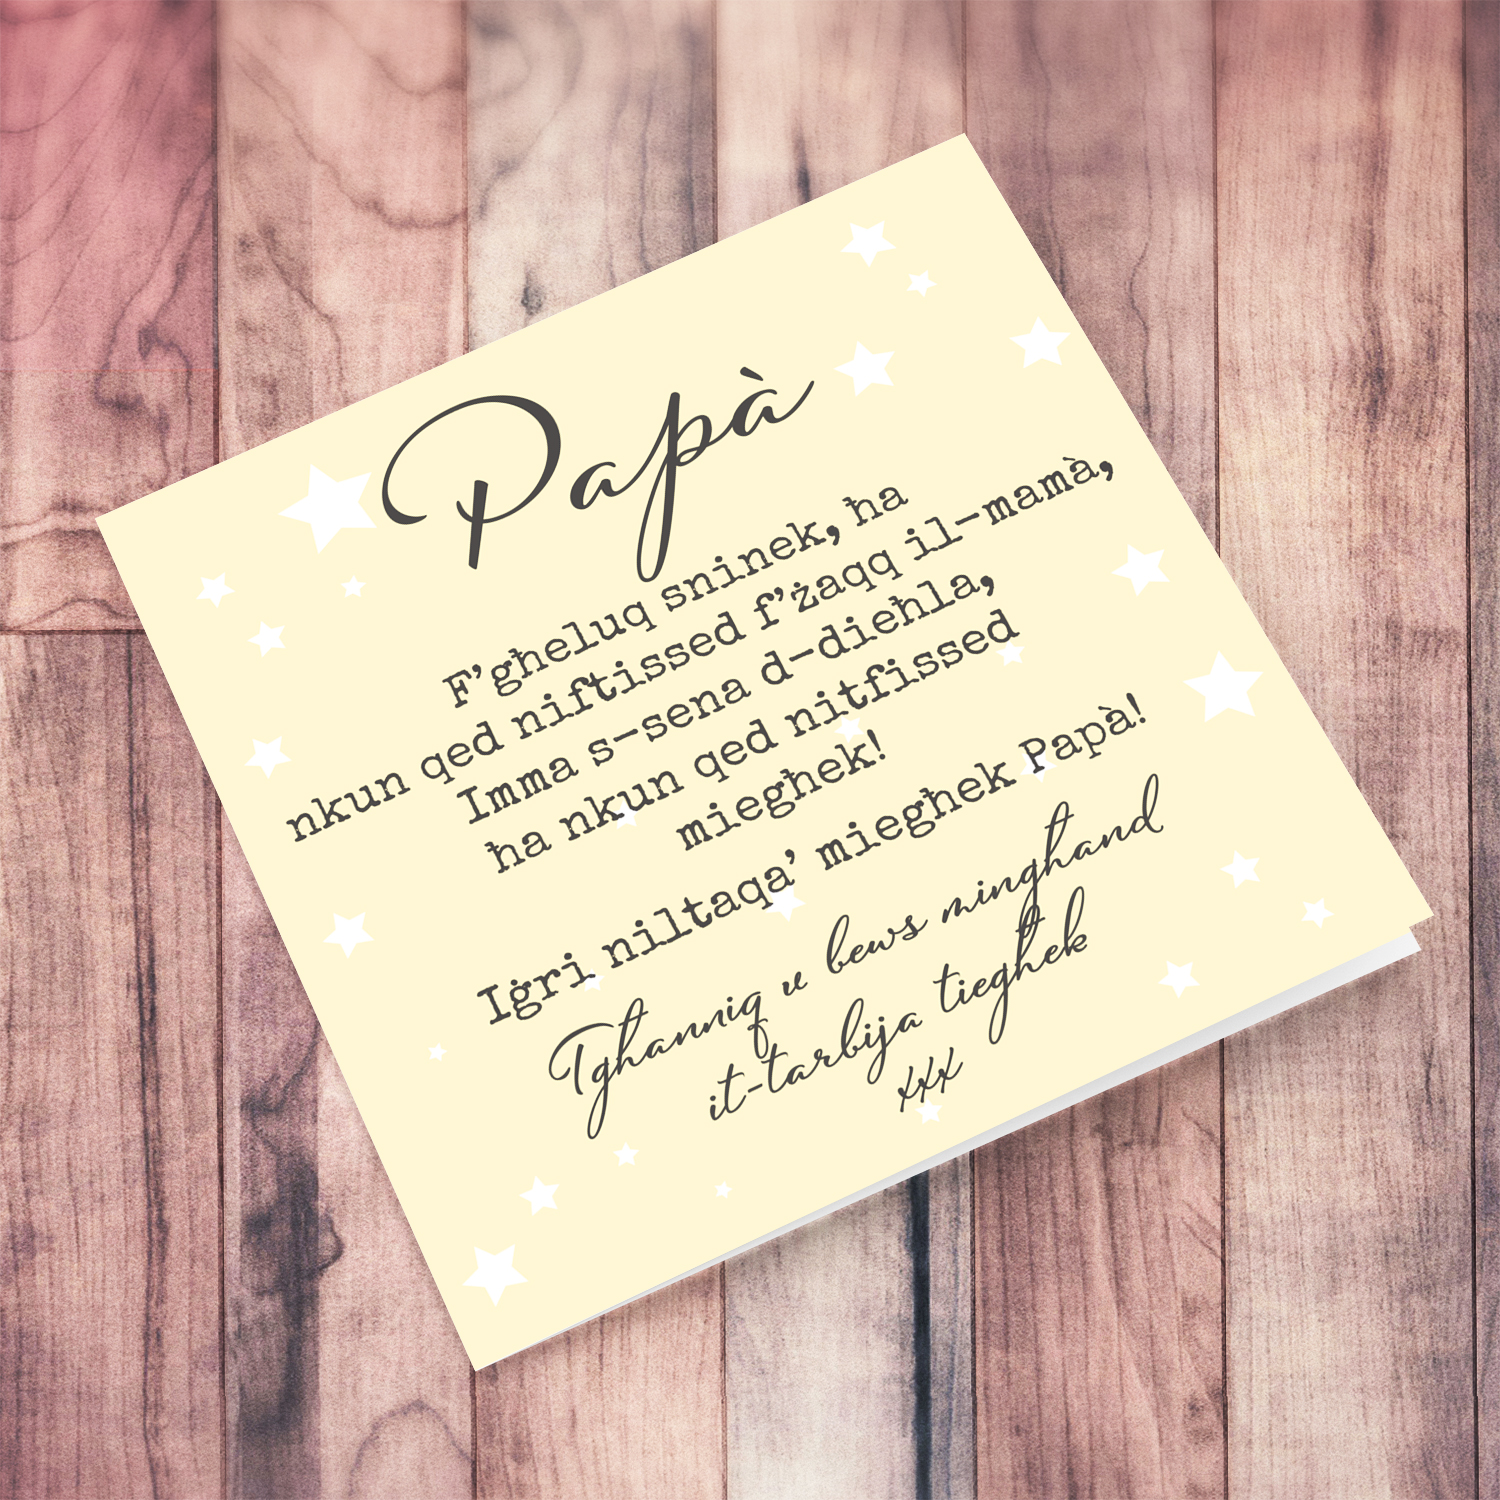 Papà
F'għeluq sninek, ħa
nkun qed niftissed f'żaqq il-mamà,
Imma s-sena d-dieħla,
ħa nkun qed nitfissed
miegħek!
Iġri niltaqa' miegħek Papà!
Tgħanniq u bews mingħand
it-tarbija tiegħek
xxx